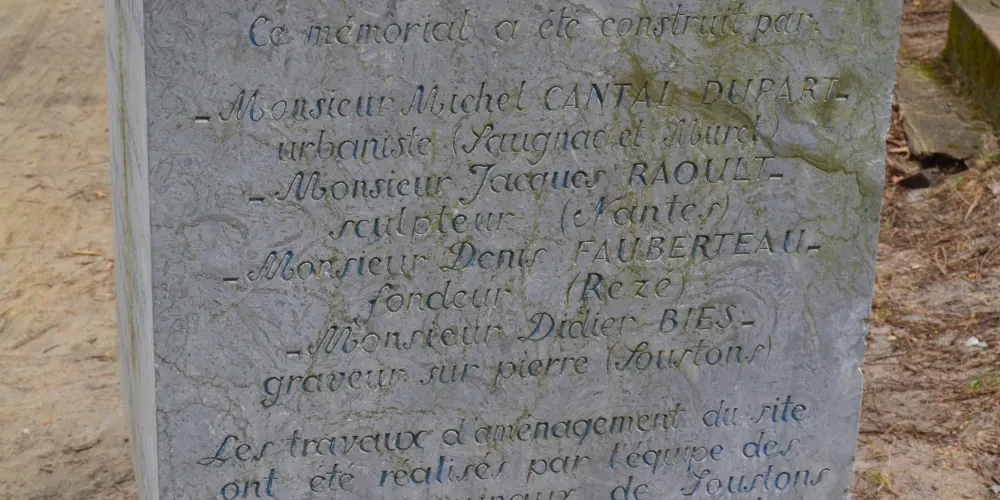 Ce mémorial a été construit par:
- Monsieur Michel CANTAL DUPART -
urbaniste (Saugnac et Muret)
- Monsieur Jacques RAOULT -
sculpteur (Nantes)
- Monsieur Denis FAUBERTEAU -
fondeur (Rezé)
- Monsieur Didier BIES -
graveur sur pierre (Soustons)
Les travaux d'aménagement du site
ont été réalisés par l'équipe des
de Soustons